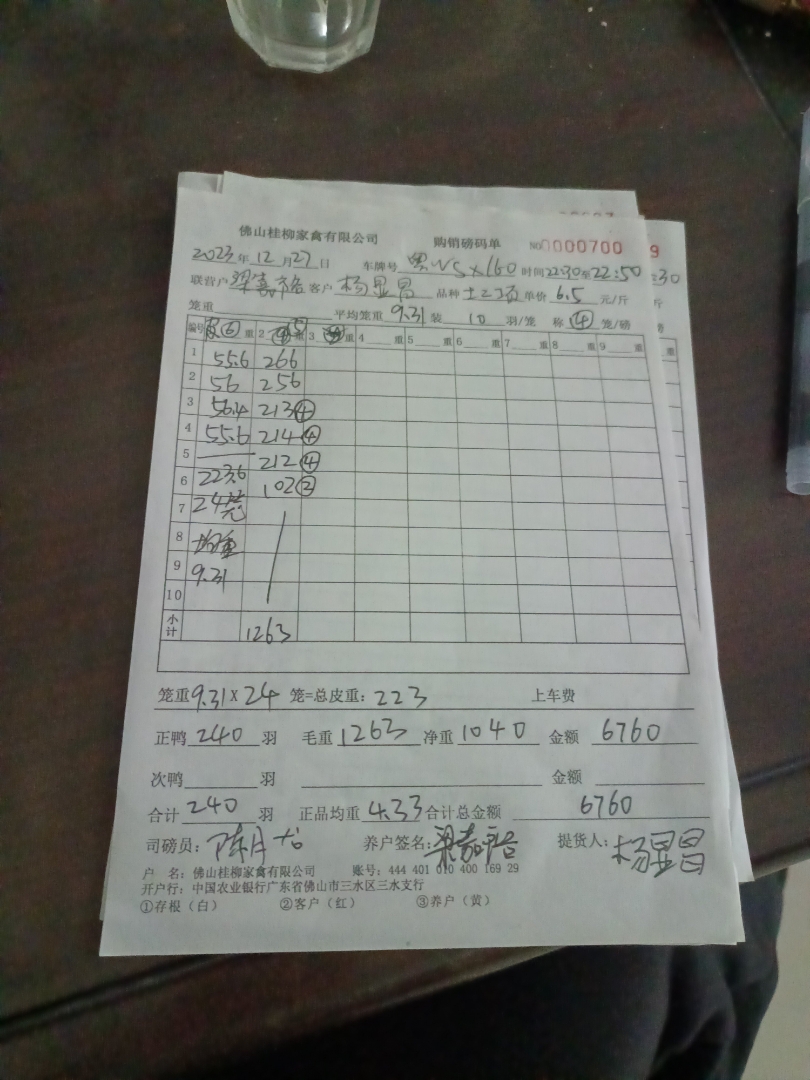 佛山桂柳家禽有限公司 购销磅码单 NO 0000700 9
2023年12月27日 车牌号 粤VSX160 时间22:30至22:50 :30
联营户 梁嘉 客户 杨显昌 品种 土2 单价 6.5 元/斤 斤
笼重 平均笼重 9.31 装 10 羽/笼 称 ④ 笼/磅
编号 ⑥ 重 2 重 3 重 4 重 5 重 6 重 7 重 8 重 9 重
1 55.6 266
2 56 256
3 56.4 213④
4 55.6 214④
5 212④
6 223.6 102②
7 24笼
8 均重
9 9.31
10
小计 1263
笼重9.31X24 笼=总皮重:223 上车费
正鸭 240 羽 毛重 1263 净重 1040 金额 6760
次鸭 羽 金额
合计 240 羽 正品均重 4.33 合计总金额 6760
司磅员: 陈月 养户签名: 梁嘉 提货人: 杨显昌
户 名: 佛山桂柳家禽有限公司 账号: 444 401 010 400 169 29
开户行: 中国农业银行广东省佛山市三水区三水支行
①存根(白) ②客户(红) ③养户(黄)